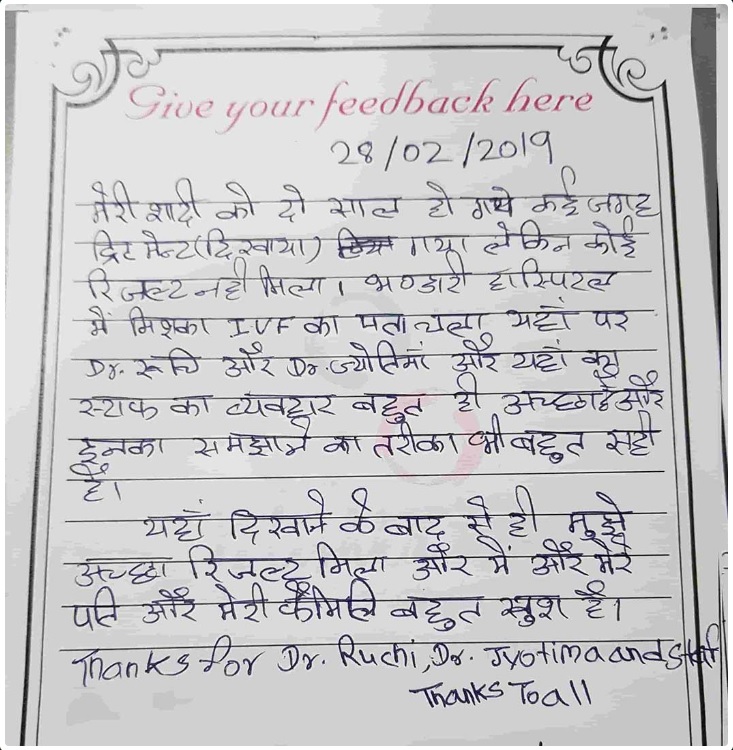 Give your feedback here
28/02/2019
मेरी शादी को दो साल हो गये कई जगह
ट्रिटमेन्ट(दिखाया) गया लेकिन कोई
रिजल्ट नही मिला। भण्डारी हास्पिटल
में मिशका IVF का पता चला यहाँ पर
Dr. रूचि और Dr. ज्योतिमां और यहाँ का
स्टाफ का व्यवहार बहुत ही अच्छा है और
इनका समझाने का तरीका भी बहुत सही
है।
यहाँ दिखाने के बाद से ही मुझे
अच्छा रिजल्ट मिला और में और मेरे
पति और मेरी फैमिलि बहुत खुश है।
Thanks for Dr. Ruchi, Dr. Jyotima and staff
Thanks To all